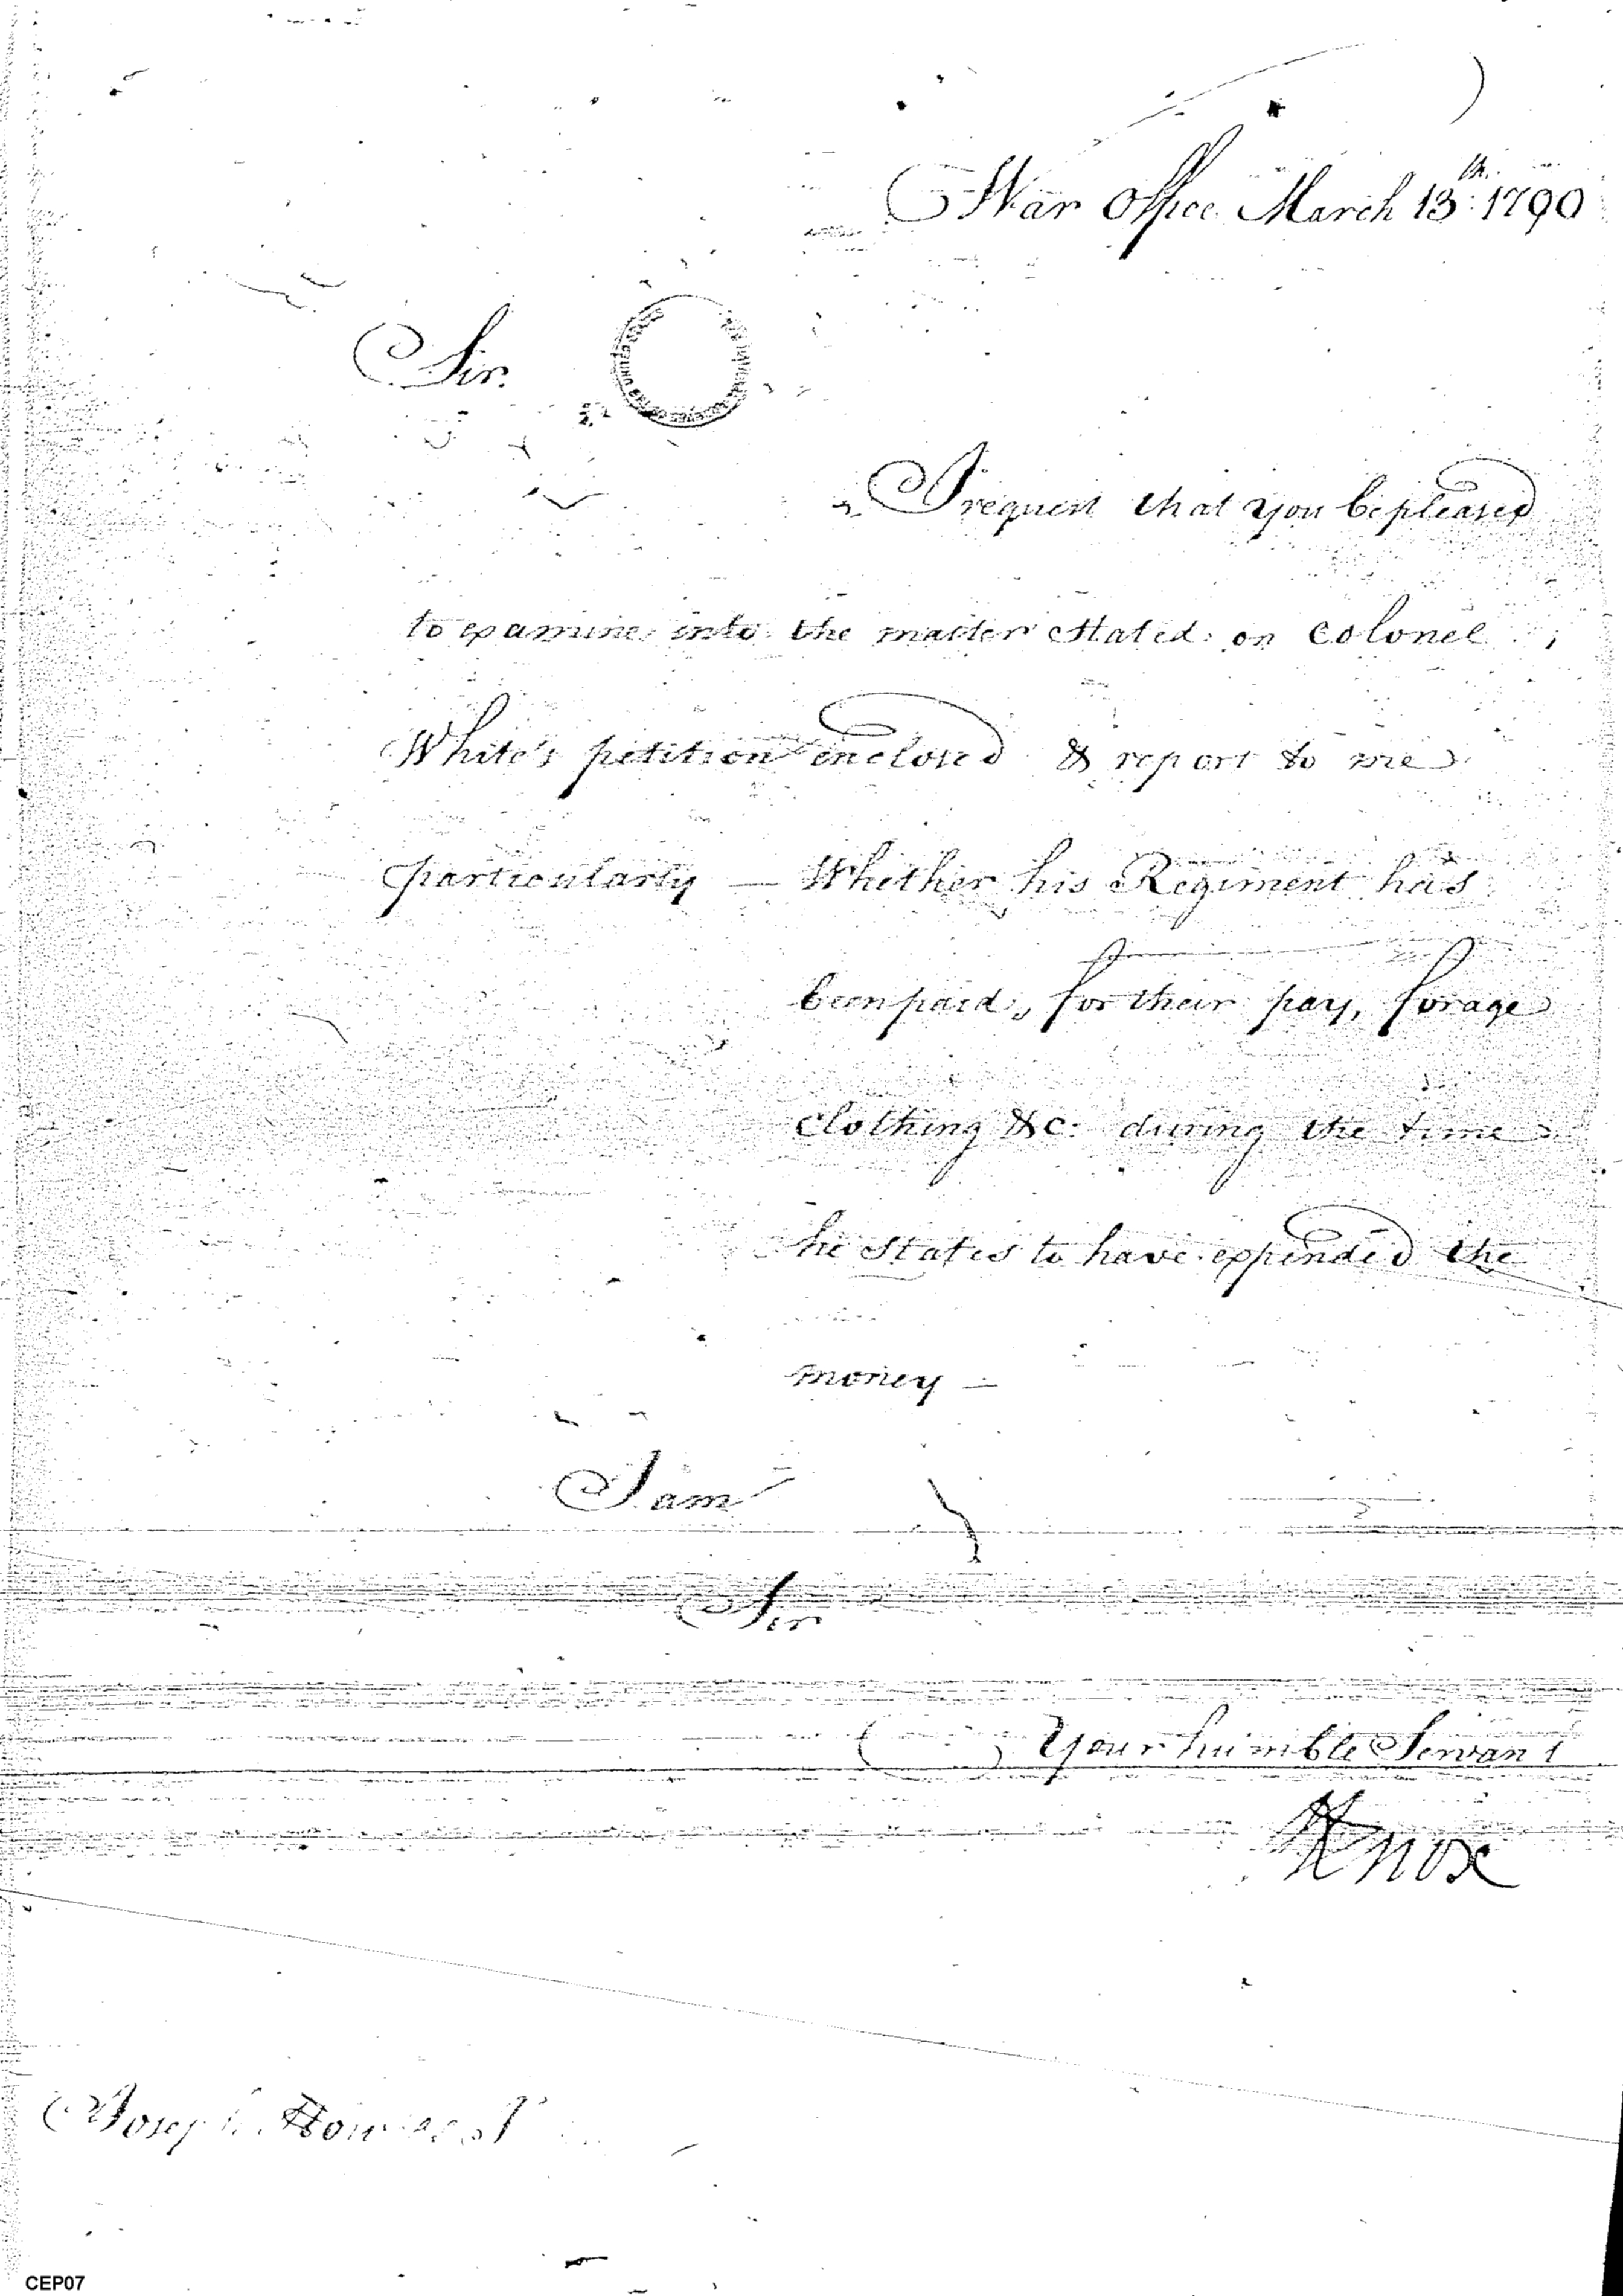 War Office March 13th. 1790
Sir.
I request that you be pleased
to examine into the matter Stated on Colonel
White's petition enclosed & report to me
particularly — Whether his Regiment has
been paid, for their pay, forage
Clothing &c. during the time
he States to have expended the
money —
I am
Sir
Your humble Servant
HKnox
Joseph
CEP07